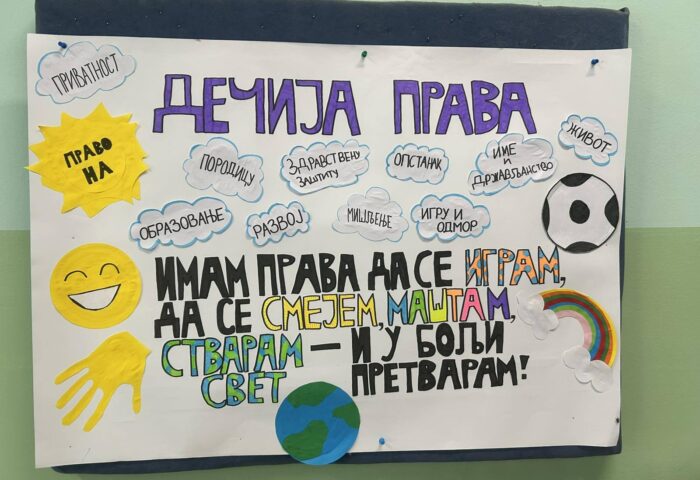 ПРИВАТНОСТ
ДЕЧИЈА ПРАВА
ПРАВО
НА
ПОРОДИЦУ
ЗДРАВСТВЕНУ
ЗАШТИТУ
ОПСТАНАК
ИМЕ
И
ДРЖАВЉАНСТВО
ЖИВОТ
ОБРАЗОВАЊЕ
РАЗВОЈ
МИШЉЕЊЕ
ИГРУ И
ОДМОР
ИМАМ ПРАВА ДА СЕ ИГРАМ,
ДА СЕ СМЕЈЕМ, МАШТАМ,
СТВАРАМ — И У БОЉИ
СВЕТ ПРЕТВАРАМ!